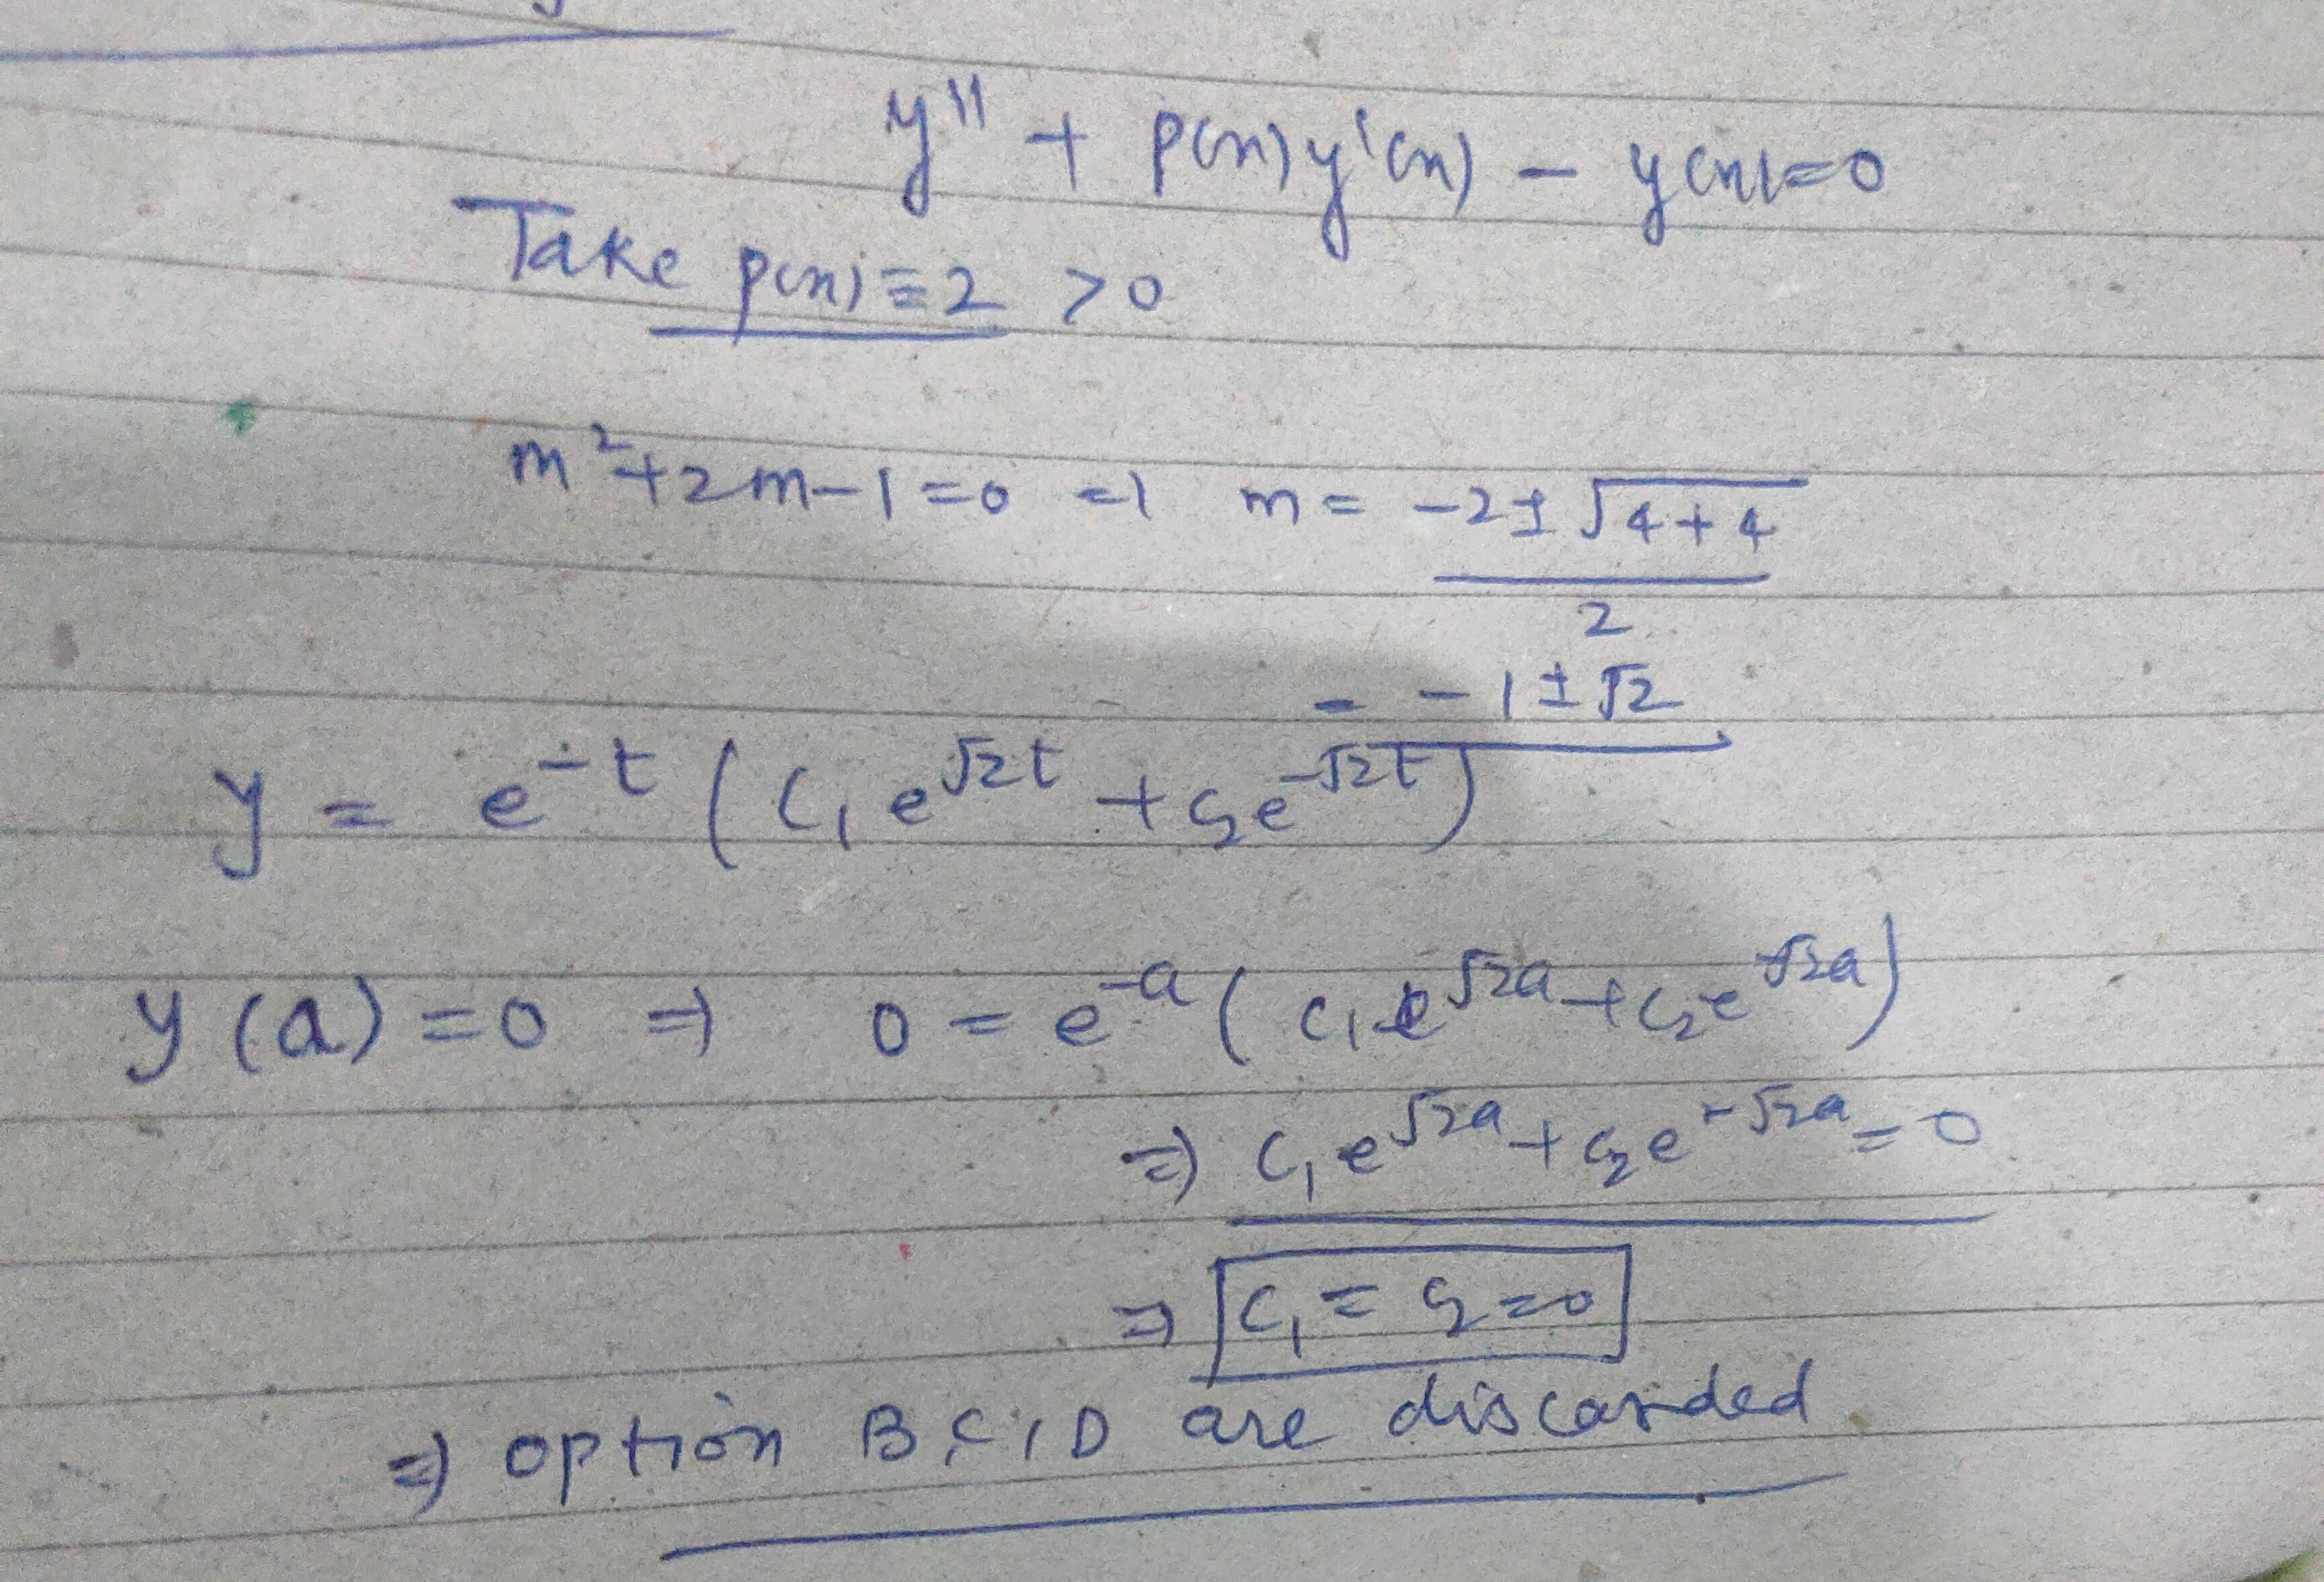 y'' + p(x)y'(x) - y(x)=0
Take p(x)=2 >0
m²+2m-1=0 ⇒ m= (-2±√(4+4))/2
= -1±√2
y = e^{-t} (C₁ e^{√2t} + C₂e^{-√2t})
y(a)=0 ⇒ 0 = e^{-a} (C₁ e^{√2a} + C₂e^{-√2a})
⇒ C₁ e^{√2a} + C₂e^{-√2a} = 0
⇒ C₁ = C₂ = 0
⇒ option B, C, D are discarded